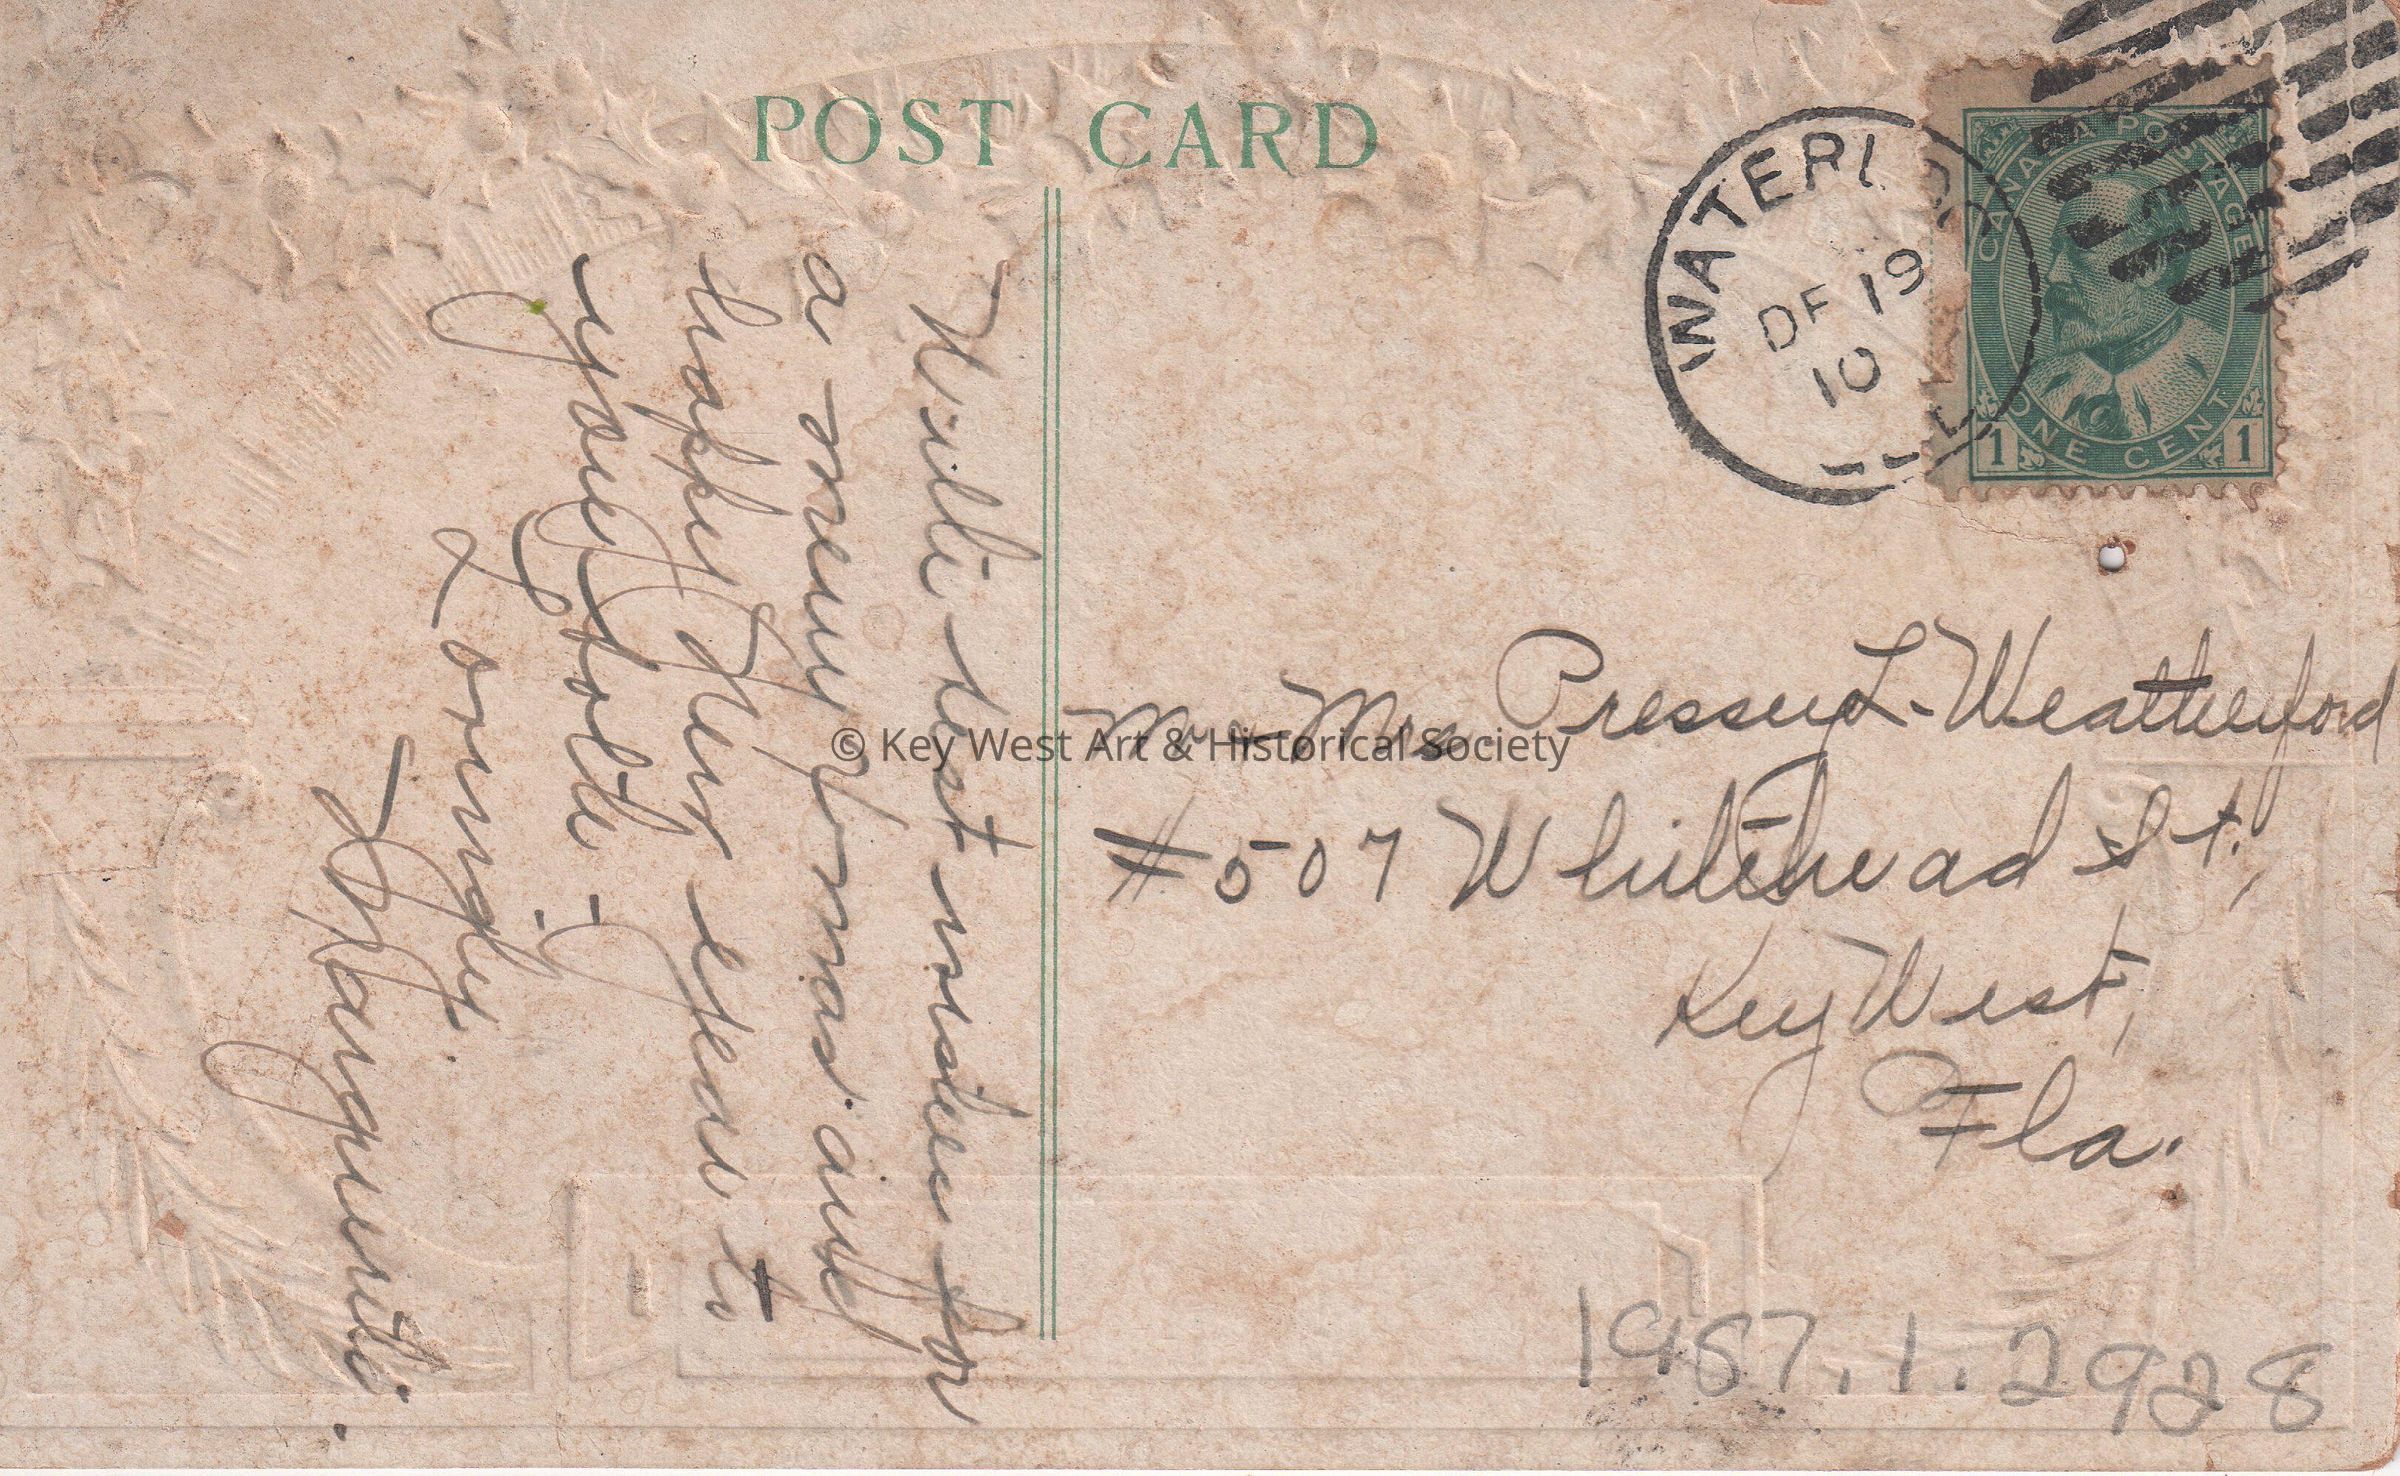 POST CARD
WATERL
DE 19
10
CANADA POSTAGE
ONE CENT
1 1
With best wishes for
a merry Xmas and
happy New year to
you both -
Lovingly
Marguerite.
Mr. Mrs. Pressey L. Weatherford
# 507 Whitehead St.,
Key West,
Fla.
© Key West Art & Historical Society
1987.1.2928